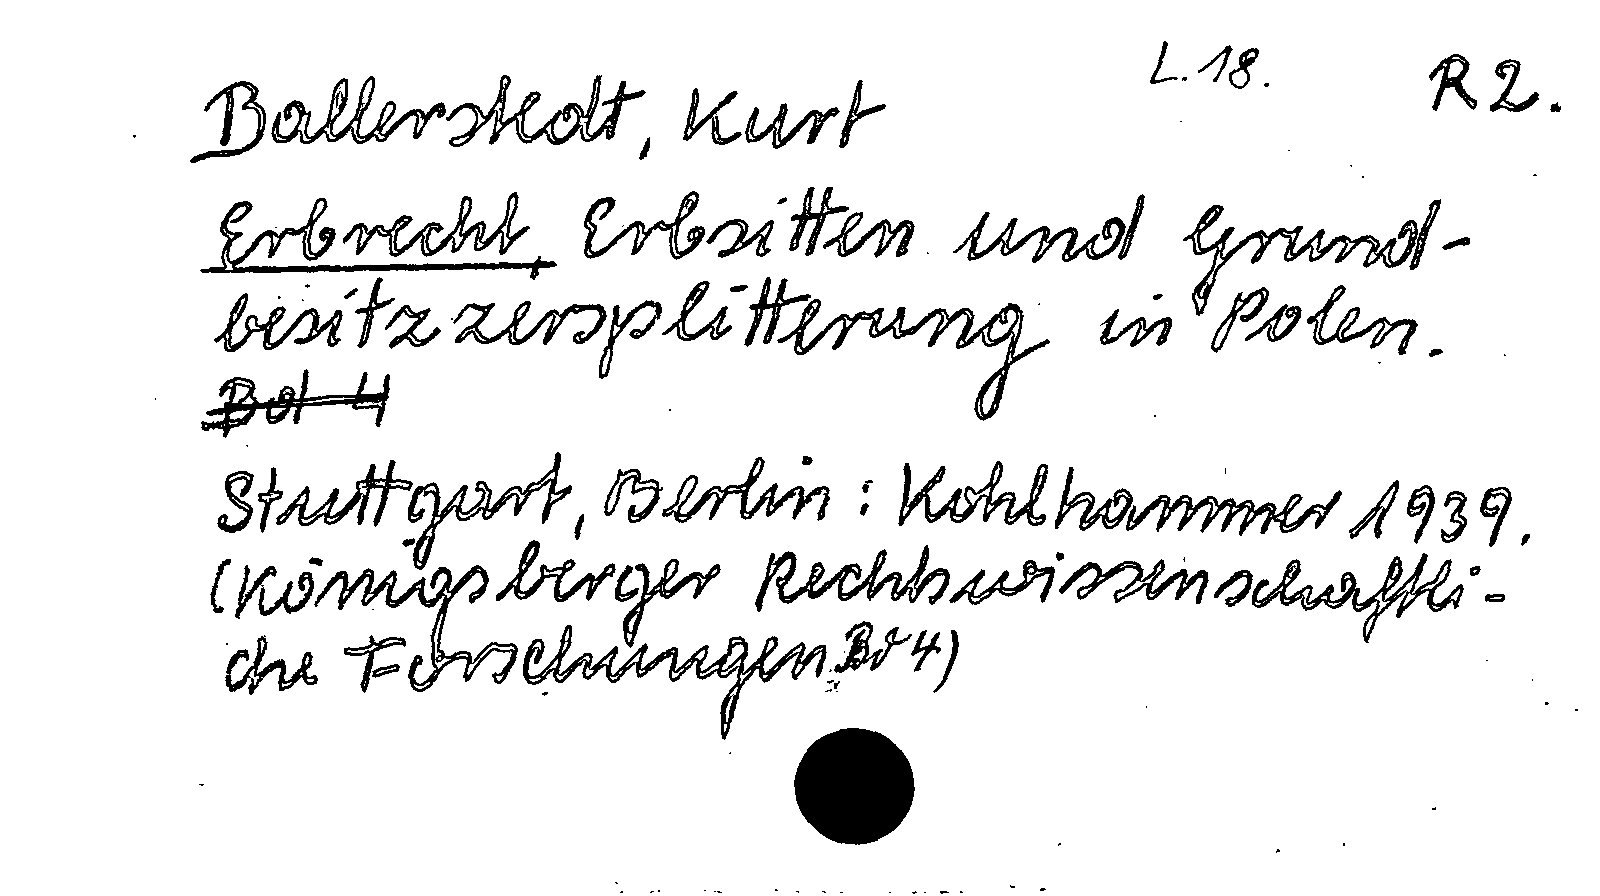 L. 18.
R 2.
Ballerstedt, Kurt
Erbrecht, Erbsitten und Grund-
besitzzersplitterung in Polen.
Bd 4
Stuttgart, Berlin : Kohlhammer 1939.
(Königsberger Rechtswissenschaftli-
che Forschungen Bd 4)